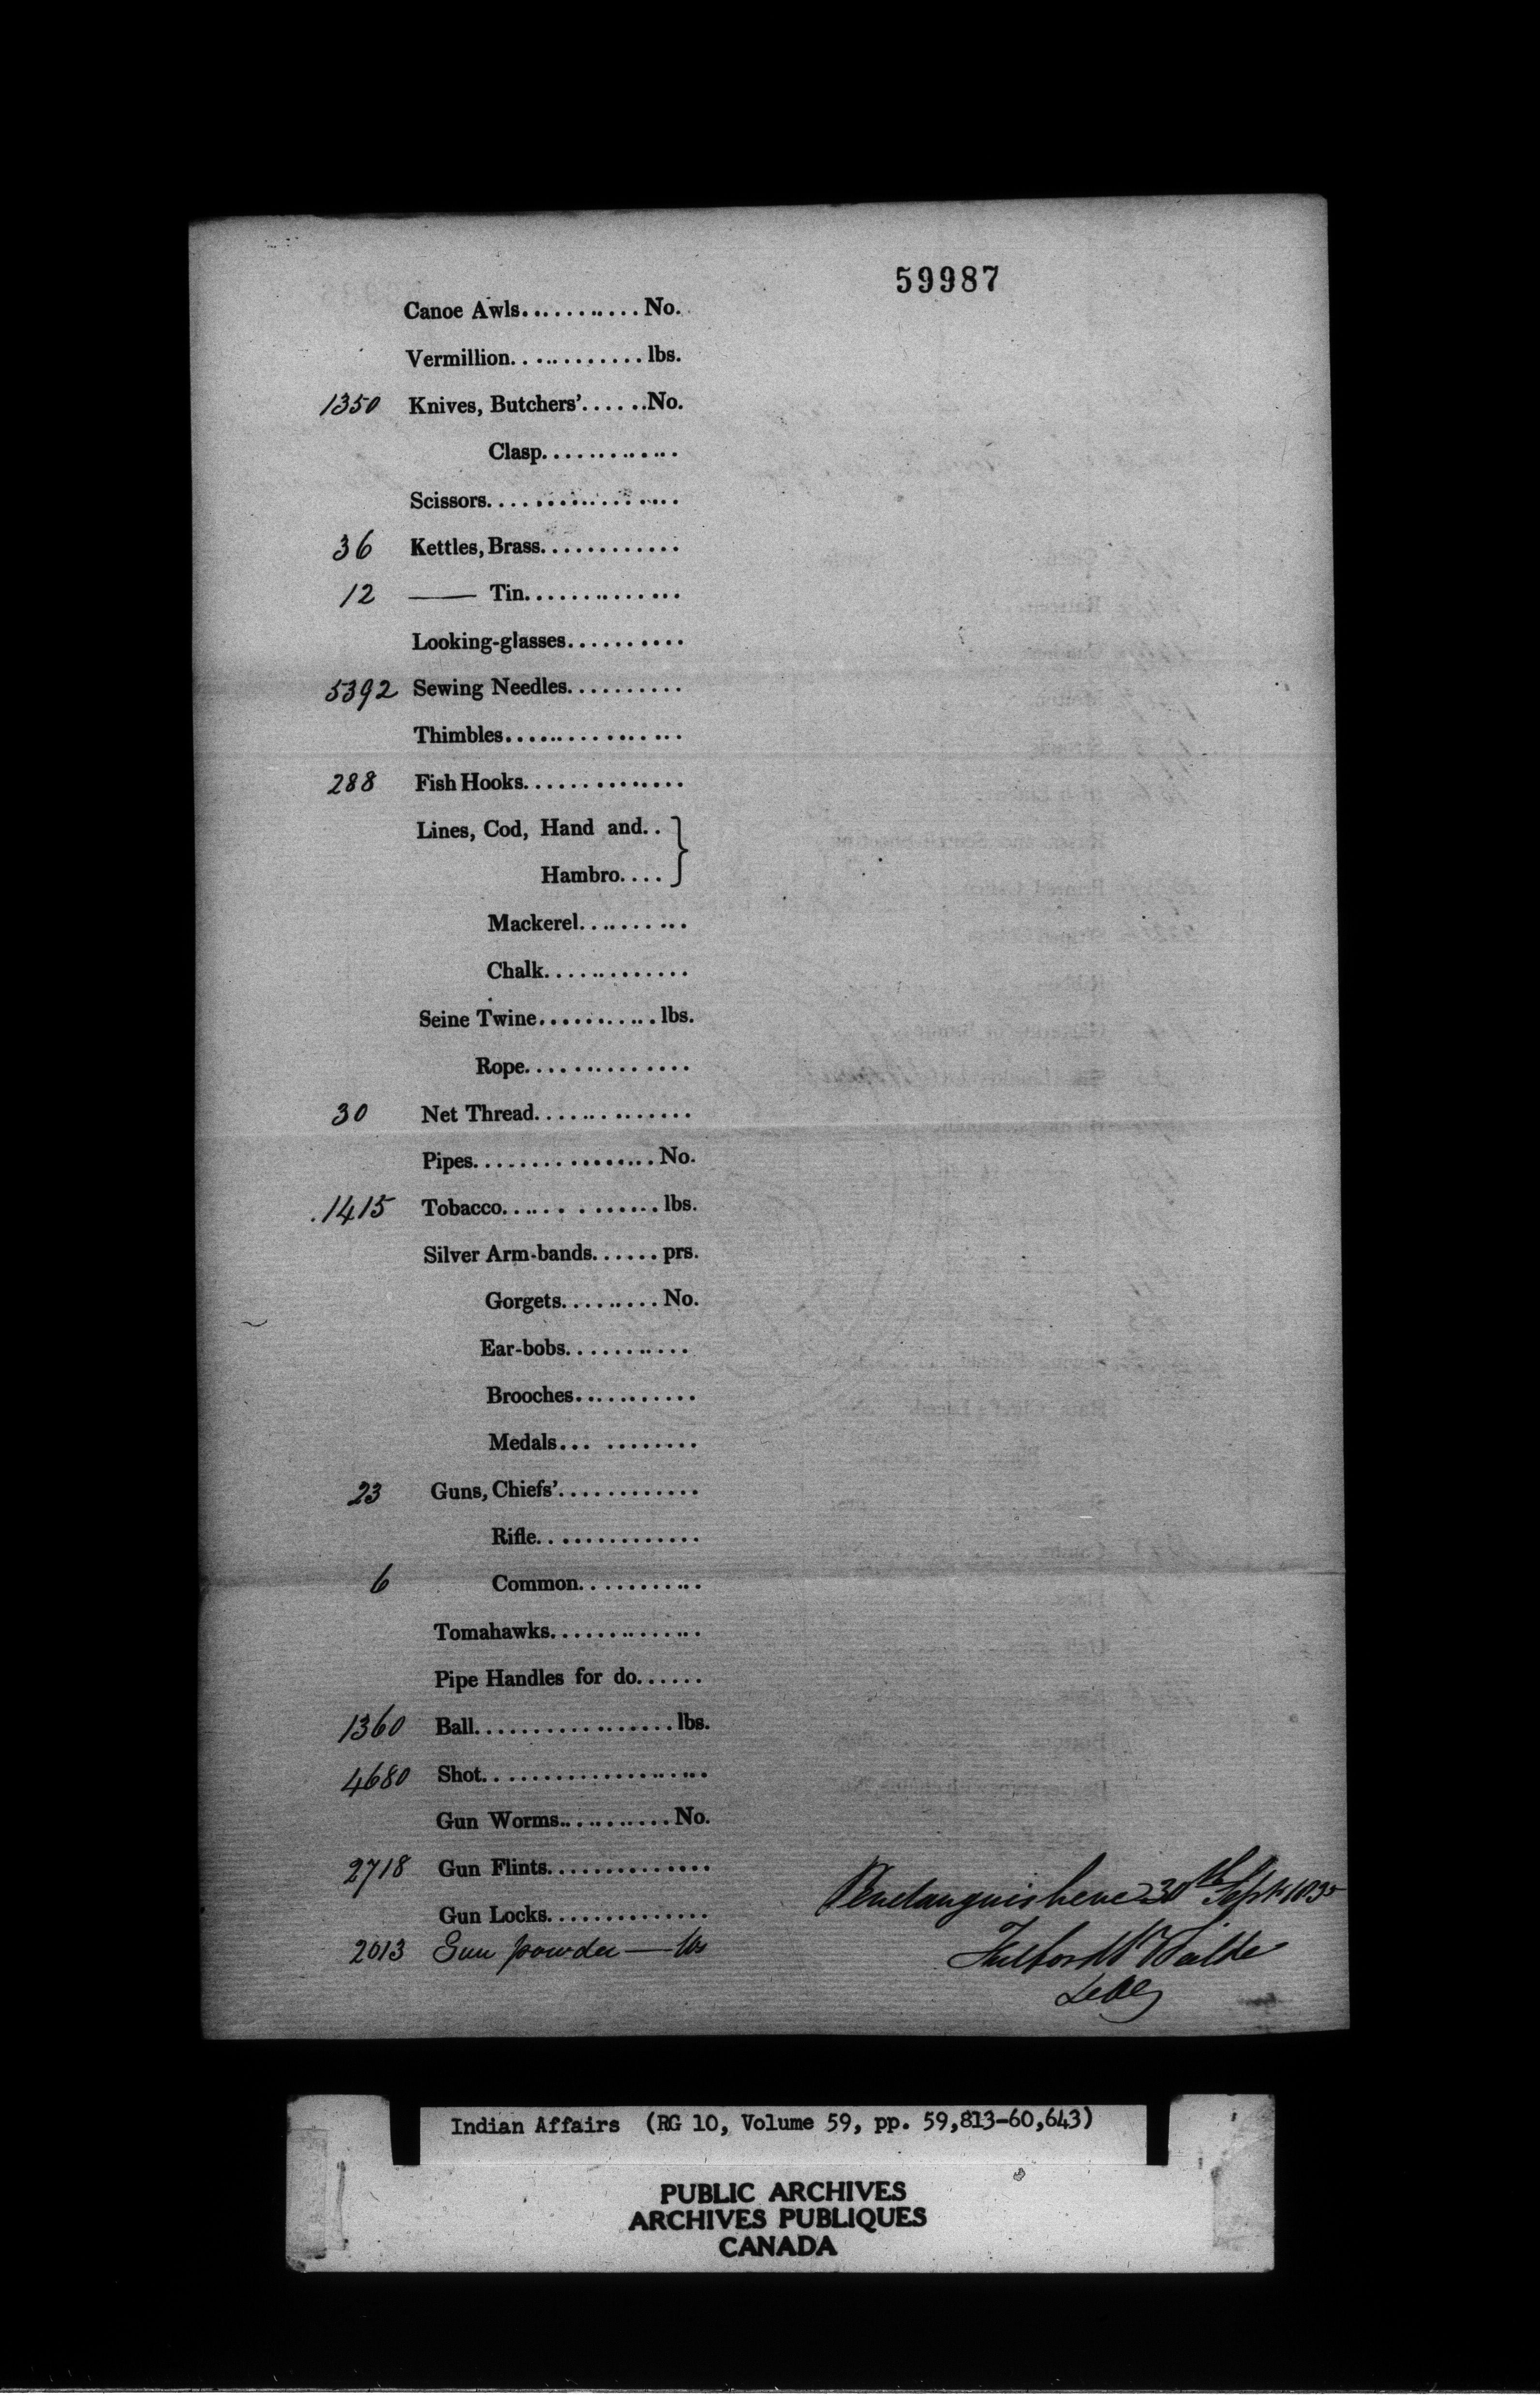 59987
Canoe Awls........... No.
Vermillion............ lbs.
1350 Knives, Butchers'......No.
Clasp............
Scissors.................
36 Kettles, Brass............
12 —— Tin.............
Looking-glasses..........
5392 Sewing Needles..........
Thimbles................
288 Fish Hooks..............
Lines, Cod, Hand and.. }
Hambro.... }
Mackerel..........
Chalk.............
Seine Twine........... lbs.
Rope..............
30 Net Thread..............
Pipes................. No.
1415 Tobacco.............. lbs.
Silver Arm-bands...... prs.
Gorgets......... No.
Ear-bobs...........
Brooches...........
Medals... ........
23 Guns, Chiefs'............
Rifle..............
6 Common...........
Tomahawks..............
Pipe Handles for do......
1360 Ball.................. lbs.
4680 Shot....................
Gun Worms........... No.
2718 Gun Flints..............
Gun Locks..............
2013 Gun powder — lbs
Penetanguishene 30th Sept
Indian Affairs (RG 10, Volume 59, pp. 59,813-60,643)
PUBLIC ARCHIVES
ARCHIVES PUBLIQUES
CANADA